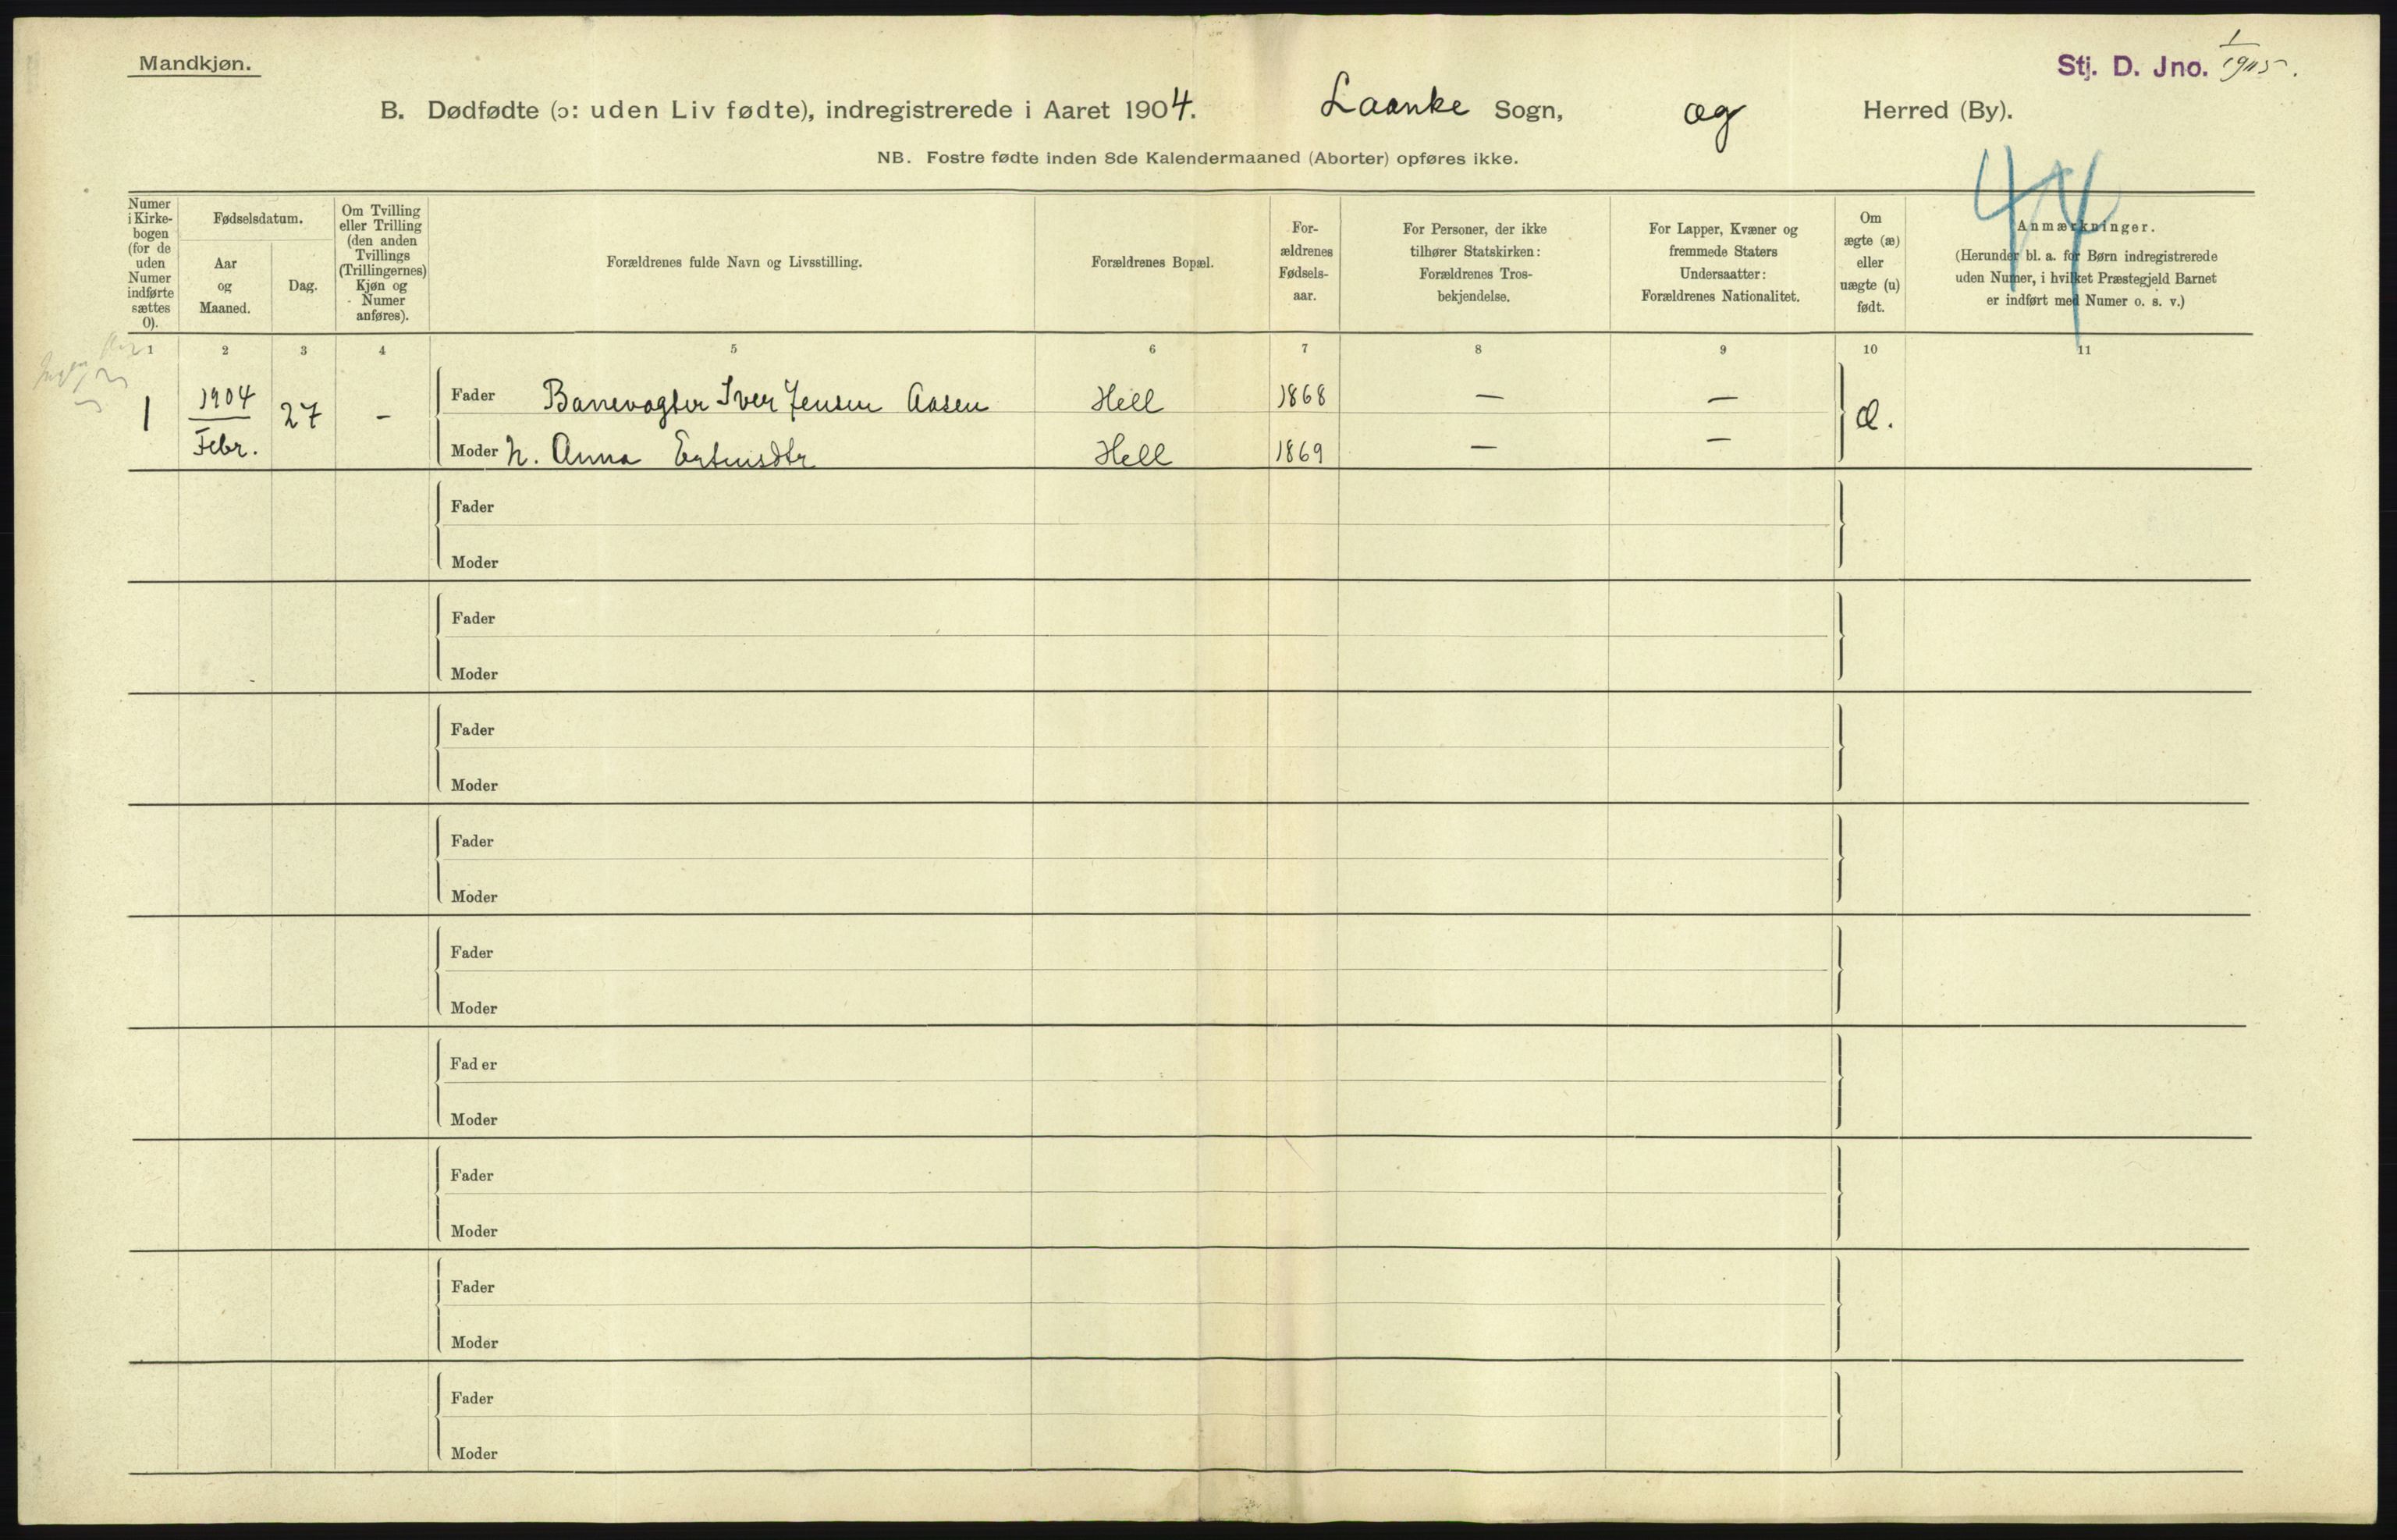 Mandkjøn.
Stj. D. Jno. 1/1905.
B. Dødfødte (ɔ: uden Liv fødte), indregistrerede i Aaret 1904. Laanke Sogn, og Herred (By).
NB. Fostre fødte inden 8de Kalendermaaned (Aborter) opføres ikke.
44
Numer
i Kirke-
bogen
(for de
uden
Numer
indførte
sættes
0).
Fødselsdatum.
Aar
og
Maaned.
Dag.
Om Tvilling
eller Trilling
(den anden
Tvillings
(Trillingernes)
Kjøn og
Numer
anføres).
Forældrenes fulde Navn og Livsstilling.
Forældrenes Bopæl.
For-
ældrenes
Fødsels-
aar.
For Personer, der ikke
tilhører Statskirken:
Forældrenes Tros-
bekjendelse.
For Lapper, Kvæner og
fremmede Staters
Undersaatter:
Forældrenes Nationalitet.
Om
ægte (æ)
eller
uægte (u)
født.
Anmærkninger.
(Herunder bl. a. for Børn indregistrerede
uden Numer, i hvilket Præstegjeld Barnet
er indført med Numer o. s. v.)
1 2 3 4 5 6 7 8 9 10 11
1 1904 Febr. 27 – Fader Banevogter Iver Jensen Aasen Hell 1868 — — Æ.
Moder h. Anna Hell 1869 — —
Fader
Moder
Fader
Moder
Fader
Moder
Fader
Moder
Fader
Moder
Fader
Moder
Fader
Moder
Fader
Moder
Fader
Moder